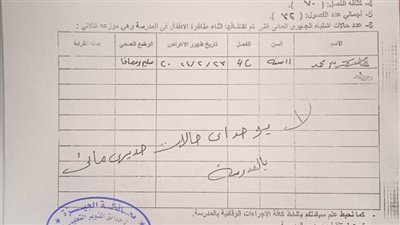 4. كثافة الفصل ( ٧٠ )
5. اجمالي عدد الفصول ( ٣٢ )
6. عدد حالات اشتباه الجديرى المائى التى تم اكتشافها اثناء مناظرة الاطفال فى المدرسة وهي موزعه كالاتي :
الاسم السن الفصل تاريخ ظهور الاعراض الوضع الصحي صلة القرابة
محمد ١١ سنة 4/C سليم ومعافا
لا يوجد اى حالات جديرى مائى
بالمدرسة
كما نحيط علم سيادتكم باتخاذ كافة الاجراءات الوقائية بالمدرسة.
محافظة الجيزة